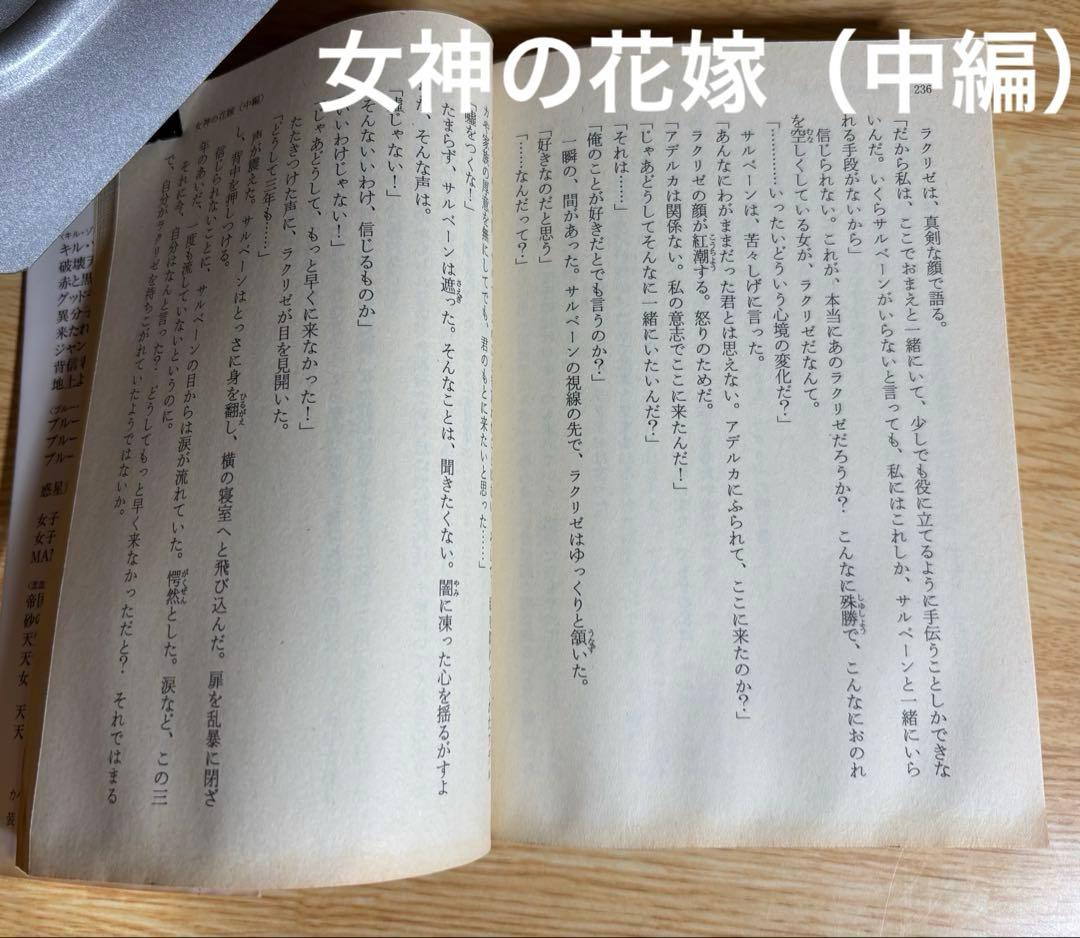 女神の花嫁（中編）
236
ラクリゼは、真剣な顔で語る。
「だから私は、ここでおまえと一緒にいて、少しでも役に立てるように手伝うことしかできな
いんだ。いくらサルベーンがいらないと言っても、私にはこれしか、サルベーンと一緒にいら
れる手段がないから」
信じられない。これが、本当にあのラクリゼだろうか？　こんなに殊勝で、こんなにおのれ
を空しくしている女が、ラクリゼだなんて。
「………いったいどういう心境の変化だ？」
サルベーンは、苦々しげに言った。
「あんなにわがままだった君とは思えない。アデルカにふられて、ここに来たのか？」
ラクリゼの顔が紅潮する。怒りのためだ。
「アデルカは関係ない。私の意志でここに来たんだ！」
「じゃあどうしてそんなに一緒にいたいんだ？」
「それは……」
「俺のことが好きだとでも言うのか？」
一瞬の、間があった。サルベーンの視線の先で、ラクリゼはゆっくりと頷いた。
「好きなのだと思う」
「……なんだって？」
女神の花嫁（中編）
家族の厚意を無にしてでも、君のもとに来たいと思った……」
「嘘をつくな！」
たまらず、サルベーンは遮った。そんなことは、聞きたくない。闇に凍った心を揺るがすよ
そんな声は。
「嘘じゃない！」
そんないいわけ、信じるものか」
いいわけじゃない！」
「じゃあどうして、もっと早くに来なかった！」
たたきつけた声に、ラクリゼが目を見開いた。
「どうして三年も……」
声が震えた。サルベーンはとっさに身を翻し、横の寝室へと飛び込んだ。扉を乱暴に閉ざ
し、背中を押しつける。
信じられないことに、サルベーンの目からは涙が流れていた。愕然とした。涙など、この三
年のあいだ、一度も流していないというのに。
それに今、自分はなんと言った？　どうしてもっと早く来なかっただと？　それではまる
で、自分がラクリゼを待ちこがれていたようではないか。
キル・
破壊
赤と黒
異分
米たれ
ジャン
背信
地上
ブルー
ブルー
ブルー
惑星
女子
女子
MA
帝国
砂
天
天
女
天
天